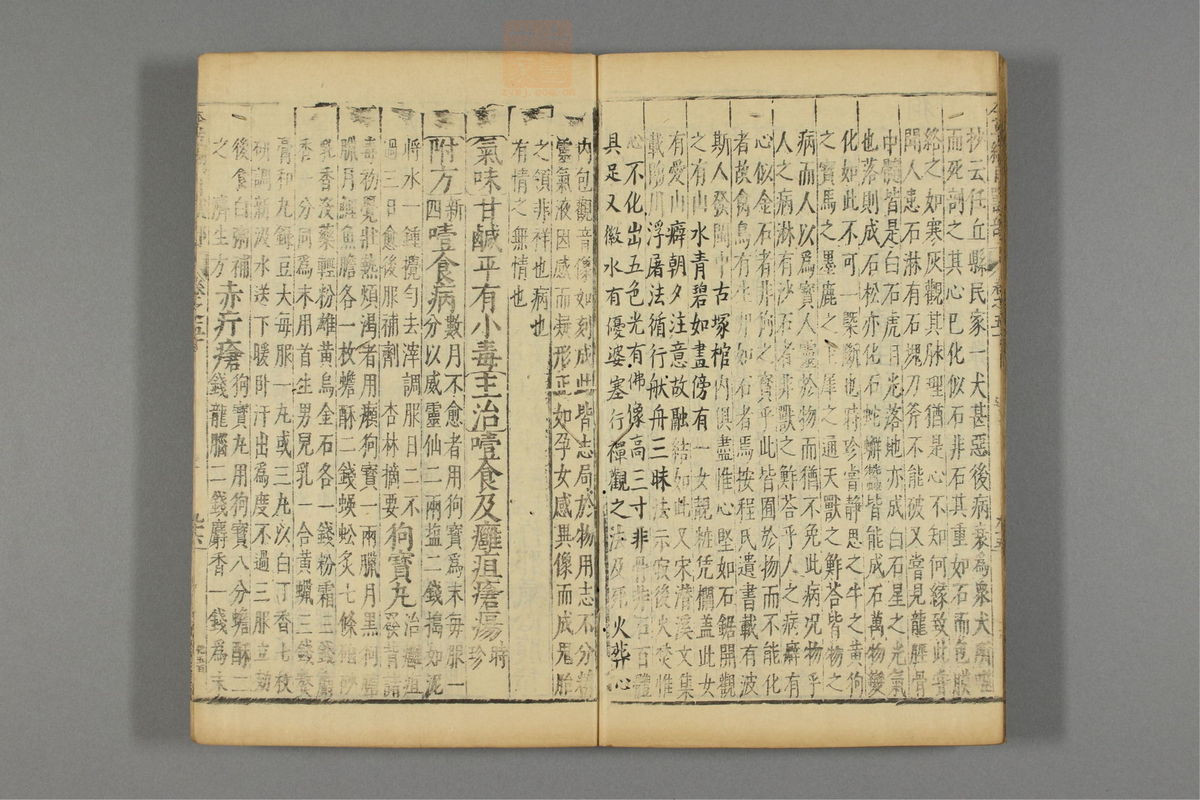 抄云任丘縣民家一犬甚惡後病衰為衆犬所
而死剖之其心已化似石非石其重如石而包膜
絡之如寒灰觀其脉理猶是心不知何緣致此嘗
聞人患石淋有石塊刀斧不能破又嘗見龍脛骨
中髓皆是白石虎目光落地亦成白石星之光氣
也落則成石松亦化石蛇蠏蠶皆能成石萬物變
化如此不可一槩斷也時珍嘗靜思之牛之黄狗
之寶馬之墨鹿之玉犀之通天獸之鮓荅皆物之
病而人以為寶人靈於物而猶不免此病况物乎
人之病淋有沙石者非獸之鮓荅乎人之病癖有
心似金石者非狗之寶乎此皆囿於物而不能化
者故禽鳥有生卵如石者焉按程氏遺書載有波
斯人發閩中古塚棺内俱盡惟心堅如石鋸開觀
之有山水青碧如畫傍有一女靚粧凭欄盖此女
有愛山癖朝夕注意故融結如此又宋濂溪文集
載臨川浮屠法循行般舟三昧法示寂後火焚惟
心不化出五色光有佛像高三寸非骨非石百體
具足又徽水有優婆塞行禪觀之法及死火葬心
内包觀音像如刻成此皆志局於物用志不分精
靈氣液因感而凝形正如孕女感異像而成鬼胎
之類非祥也病也
有情之無情也
氣味甘鹹平有小毒主治噎食及癰疽瘡瘍時珍
附方新四噎食病數月不愈者用狗寶為末每服一分以威靈仙二兩塩二錢搗如泥
將水一鍾攪勻去滓調服日二不
過三日愈後服補劑 杏林摘要狗寶丸治癰疽發背諸
毒初覺壯熱煩渴者用癩狗寶一兩臘月黑狗膽
臘月鯉魚膽各一枚蟾酥二錢蜈蚣炙七條硇砂
乳香沒藥輕粉雄黄烏金石各一錢粉霜三錢麝
香一分同為末用首生男兒乳一合黄蠟三錢熬
膏和丸緑豆大每服一丸或三丸以白丁香七枚
研調新汲水送下暖卧汗出為度不過三服立効
後食白粥補
之 濟生方赤疔瘡狗寶丸用狗寶八分蟾酥二錢龍腦二錢麝香一錢為末